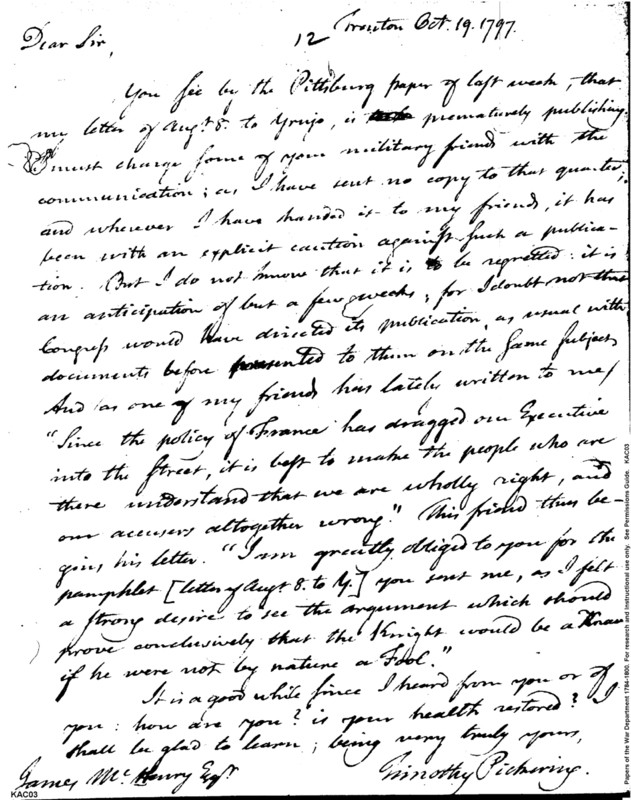 Trenton Oct. 19. 1797.
12
Dear Sir,
You see by the Pittsburg paper of last week, that
my letter of Augt. 8. to Yrujo, is prematurely publishing.
I must charge some of your military friends with the
communication; as I have sent no copy to that quarter;
and wherever I have handed it to my friends, it has
been with an explicit caution against such a publica-
tion. But I do not know that it is to be regretted: it is
an anticipation of but a few weeks; for I doubt not that
Congress would have directed its publication, as usual with
documents before presented to them on the same subject.
And (as one of my friends has lately written to me)
"Since the policy of France has dragged our Executive
into the street, it is best to make the people who are
there understand that we are wholly right, and
our accusers altogether wrong." This friend thus be-
gins his letter. "I am greatly obliged to you for the
pamphlet [letter of Augt. 8. to Y.] you sent me, as I felt
a strong desire to see the argument which should
prove conclusively that the Knight would be a Knave
if he were not by nature a Fool."
It is a good while since I heard from you or of
you: how are you? is your health restored? I
shall be glad to learn; being very truly yours,
James McHenry Esqr.
Timothy Pickering.
KAC03
Papers of the War Department 1784-1800. For research and instructional use only. See Permissions Guide. KAC03